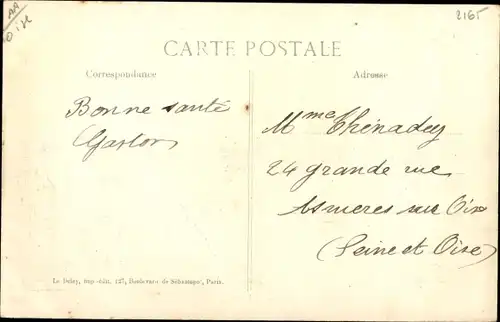 AA
Oise
2165
CARTE POSTALE
Correspondance
Adresse
Bonne santé
Gaston
Mme Thénadey
24 grande rue
Asnieres sur Oise
(Seine et Oise)
Le Deley, imp.-édit. 127, Boulevard de Sébastopol, Paris.